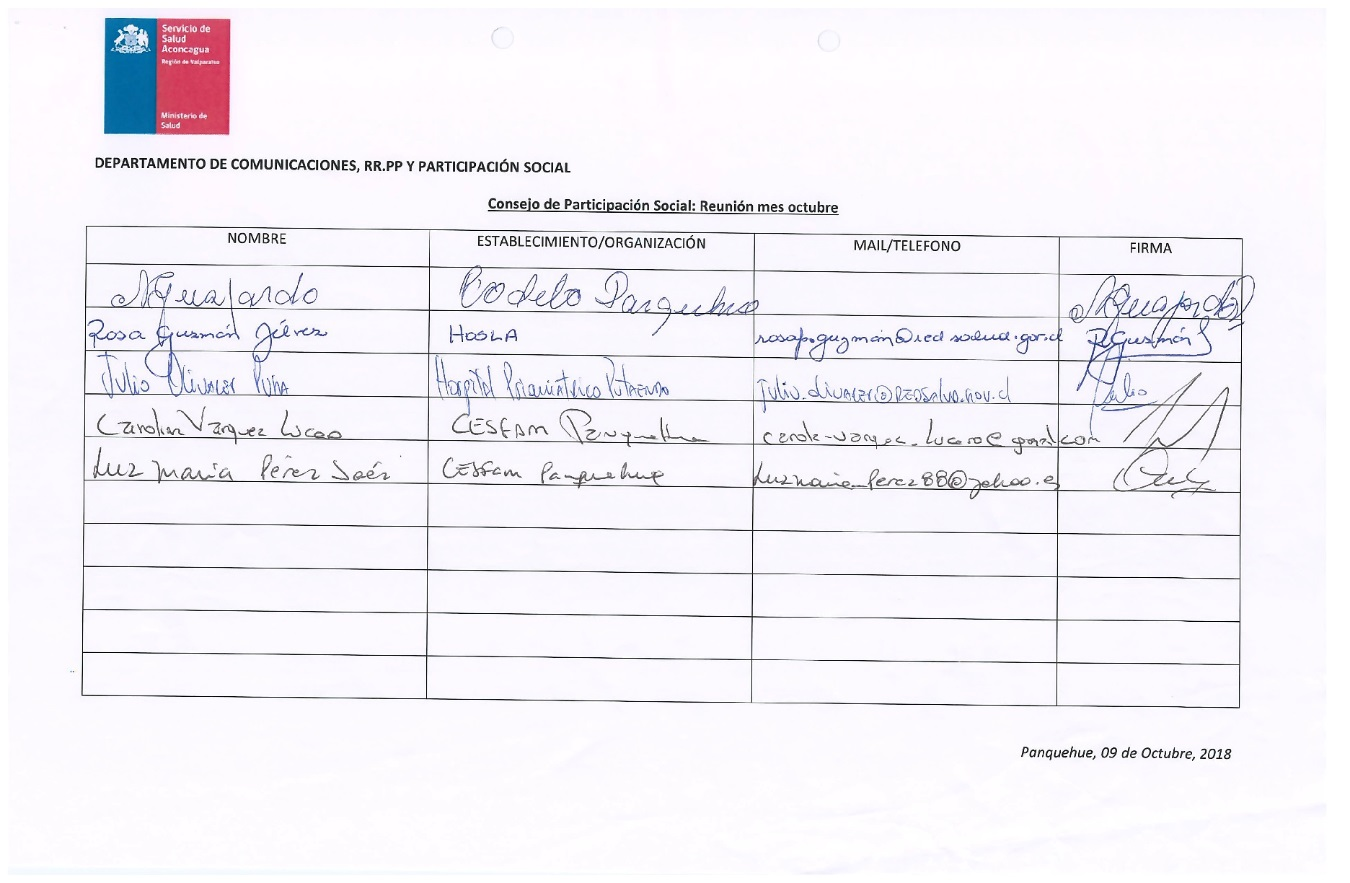 Servicio de
Salud
Aconcagua
Región de Valparaíso
Ministerio de
Salud
DEPARTAMENTO DE COMUNICACIONES, RR.PP Y PARTICIPACIÓN SOCIAL
Consejo de Participación Social: Reunión mes octubre
NOMBRE ESTABLECIMIENTO/ORGANIZACIÓN MAIL/TELEFONO FIRMA
NGuajardo Codelo Panquehue NGuajardo
Rosa Guzmán Gálvez HOSLA rosap.guzmán@red salud.gov.cl RGuzmán
Julio Olivares Hospital Psiquiátrico Putaendo Julio
Vázquez Lucero CESFAM Panquehue
Luz María Pérez Saéz CESFam Panquehue
Panquehue, 09 de Octubre, 2018